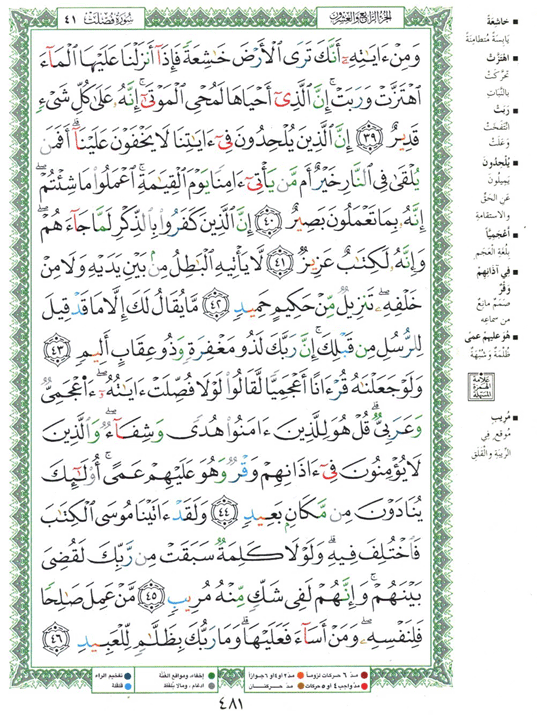 الجزء الرابع والعشرون
سورة فصلت ٤١
وَمِنْ ءَايَٰتِهِۦٓ أَنَّكَ تَرَى ٱلْأَرْضَ خَٰشِعَةً فَإِذَآ أَنزَلْنَا عَلَيْهَا ٱلْمَآءَ
ٱهْتَزَّتْ وَرَبَتْ ۚ إِنَّ ٱلَّذِىٓ أَحْيَاهَا لَمُحْىِ ٱلْمَوْتَىٰٓ ۚ إِنَّهُۥ عَلَىٰ كُلِّ شَىْءٍ
قَدِيرٌ ٣٩ إِنَّ ٱلَّذِينَ يُلْحِدُونَ فِىٓ ءَايَٰتِنَا لَا يَخْفَوْنَ عَلَيْنَآ ۗ أَفَمَن
يُلْقَىٰ فِى ٱلنَّارِ خَيْرٌ أَم مَّن يَأْتِىٓ ءَامِنًا يَوْمَ ٱلْقِيَٰمَةِ ۚ ٱعْمَلُوا۟ مَا شِئْتُمْ ۖ
إِنَّهُۥ بِمَا تَعْمَلُونَ بَصِيرٌ ٤٠ إِنَّ ٱلَّذِينَ كَفَرُوا۟ بِٱلذِّكْرِ لَمَّا جَآءَهُمْ ۖ
وَإِنَّهُۥ لَكِتَٰبٌ عَزِيزٌ ٤١ لَّا يَأْتِيهِ ٱلْبَٰطِلُ مِنۢ بَيْنِ يَدَيْهِ وَلَا مِنْ
خَلْفِهِۦ ۖ تَنزِيلٌ مِّنْ حَكِيمٍ حَمِيدٍ ٤٢ مَّا يُقَالُ لَكَ إِلَّا مَا قَدْ قِيلَ
لِلرُّسُلِ مِن قَبْلِكَ ۚ إِنَّ رَبَّكَ لَذُو مَغْفِرَةٍ وَذُو عِقَابٍ أَلِيمٍ ٤٣
وَلَوْ جَعَلْنَٰهُ قُرْءَانًا أَعْجَمِيًّا لَّقَالُوا۟ لَوْلَا فُصِّلَتْ ءَايَٰتُهُۥٓ ۖ ءَا۬عْجَمِىٌّ
وَعَرَبِىٌّ ۗ قُلْ هُوَ لِلَّذِينَ ءَامَنُوا۟ هُدًى وَشِفَآءٌ ۖ وَٱلَّذِينَ
لَا يُؤْمِنُونَ فِىٓ ءَاذَانِهِمْ وَقْرٌ وَهُوَ عَلَيْهِمْ عَمًى ۚ أُو۟لَٰٓئِكَ
يُنَادَوْنَ مِن مَّكَانٍۭ بَعِيدٍ ٤٤ وَلَقَدْ ءَاتَيْنَا مُوسَى ٱلْكِتَٰبَ
فَٱخْتُلِفَ فِيهِ ۗ وَلَوْلَا كَلِمَةٌ سَبَقَتْ مِن رَّبِّكَ لَقُضِىَ
بَيْنَهُمْ ۚ وَإِنَّهُمْ لَفِى شَكٍّ مِّنْهُ مُرِيبٍ ٤٥ مَّنْ عَمِلَ صَٰلِحًا
فَلِنَفْسِهِۦ ۖ وَمَنْ أَسَآءَ فَعَلَيْهَا ۗ وَمَا رَبُّكَ بِظَلَّٰمٍ لِّلْعَبِيدِ ٤٦
خاشِعَةً
يَابِسَةً مُتَطَامِنَةً
اهْتَزَّتْ
تَحَرَّكَتْ
بِالنَّبَاتِ
رَبَتْ
انْتَفَخَتْ
وَعَلَتْ
يُلْحِدُونَ
يَمِيلُونَ
عَنِ الحَقِّ
والاستقامةِ
أعْجَمِيّاً
بِلُغَةِ العَجَمِ
فِي آذَانِهِمْ
وَقْرٌ
صَمَمٌ مانِعٌ
من سماعِهِ
هُوَ عليهِمْ عمًى
ظُلْمَةٌ وشُبْهَةٌ
علامة
الهمزة
المسهلة
مُرِيبٍ
مُوقعٍ فِي
الرِّيبَةِ والْقَلَقِ
مدّ ٦ حركات لزوماً
مدّ ٢ أو ٤ أو ٦ جوازاً
إخفاء، ومواقع الغُنَّة
تفخيم الراء
مدّ واجب ٤ أو ٥ حركات
مدّ حركتان
إدغام، وما لا يُلفَظ
قلقلة
٤٨١